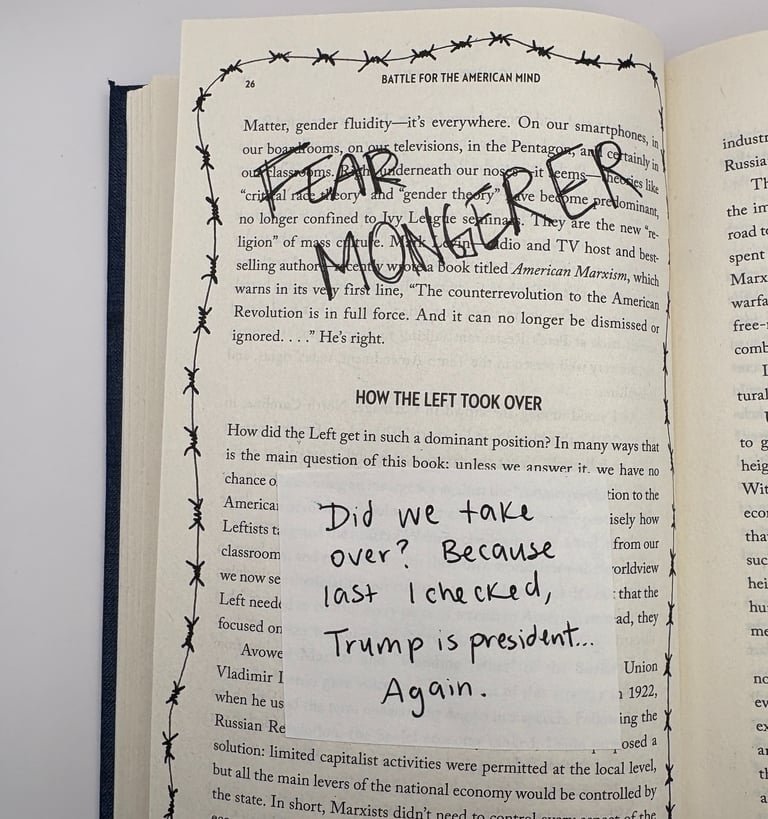 26
BATTLE FOR THE AMERICAN MIND
Matter, gender fluidity—it's everywhere. On our smartphones, in
our boardrooms, on our televisions, in the Pentagon, and certainly in
our classrooms. Right underneath our noses—it seems—theories like
"critical race theory" and "gender theory" have become predominant,
no longer confined to Ivy League seminars. They are the new "re-
ligion" of mass culture. Mark Levin—radio and TV host and best-
selling author—recently wrote a book titled American Marxism, which
warns in its very first line, "The counterrevolution to the American
Revolution is in full force. And it can no longer be dismissed or
ignored. . . ." He's right.
FEAR
MONGERER
HOW THE LEFT TOOK OVER
How did the Left get in such a dominant position? In many ways that
is the main question of this book: unless we answer it, we have no
chance
tion to the
America
isely how
Leftists
from our
classroom
orldview
we now se
that the
Left neede
ad, they
focused on
Avowe
Union
Vladimir
1922,
when he us
ing the
Russian Re
osed a
Did we take
over? Because
last I checked,
Trump is president...
Again.
solution: limited capitalist activities were permitted at the local level,
but all the main levers of the national economy would be controlled by
the state. In short, Marxists didn't need to control every aspect of the
industr
Russia
Th
the im
road to
spent
Marx
warfa
free-
comb
tural
to g
heig
Wit
econ
tha
suc
hei
hu
me
no
ev
ex